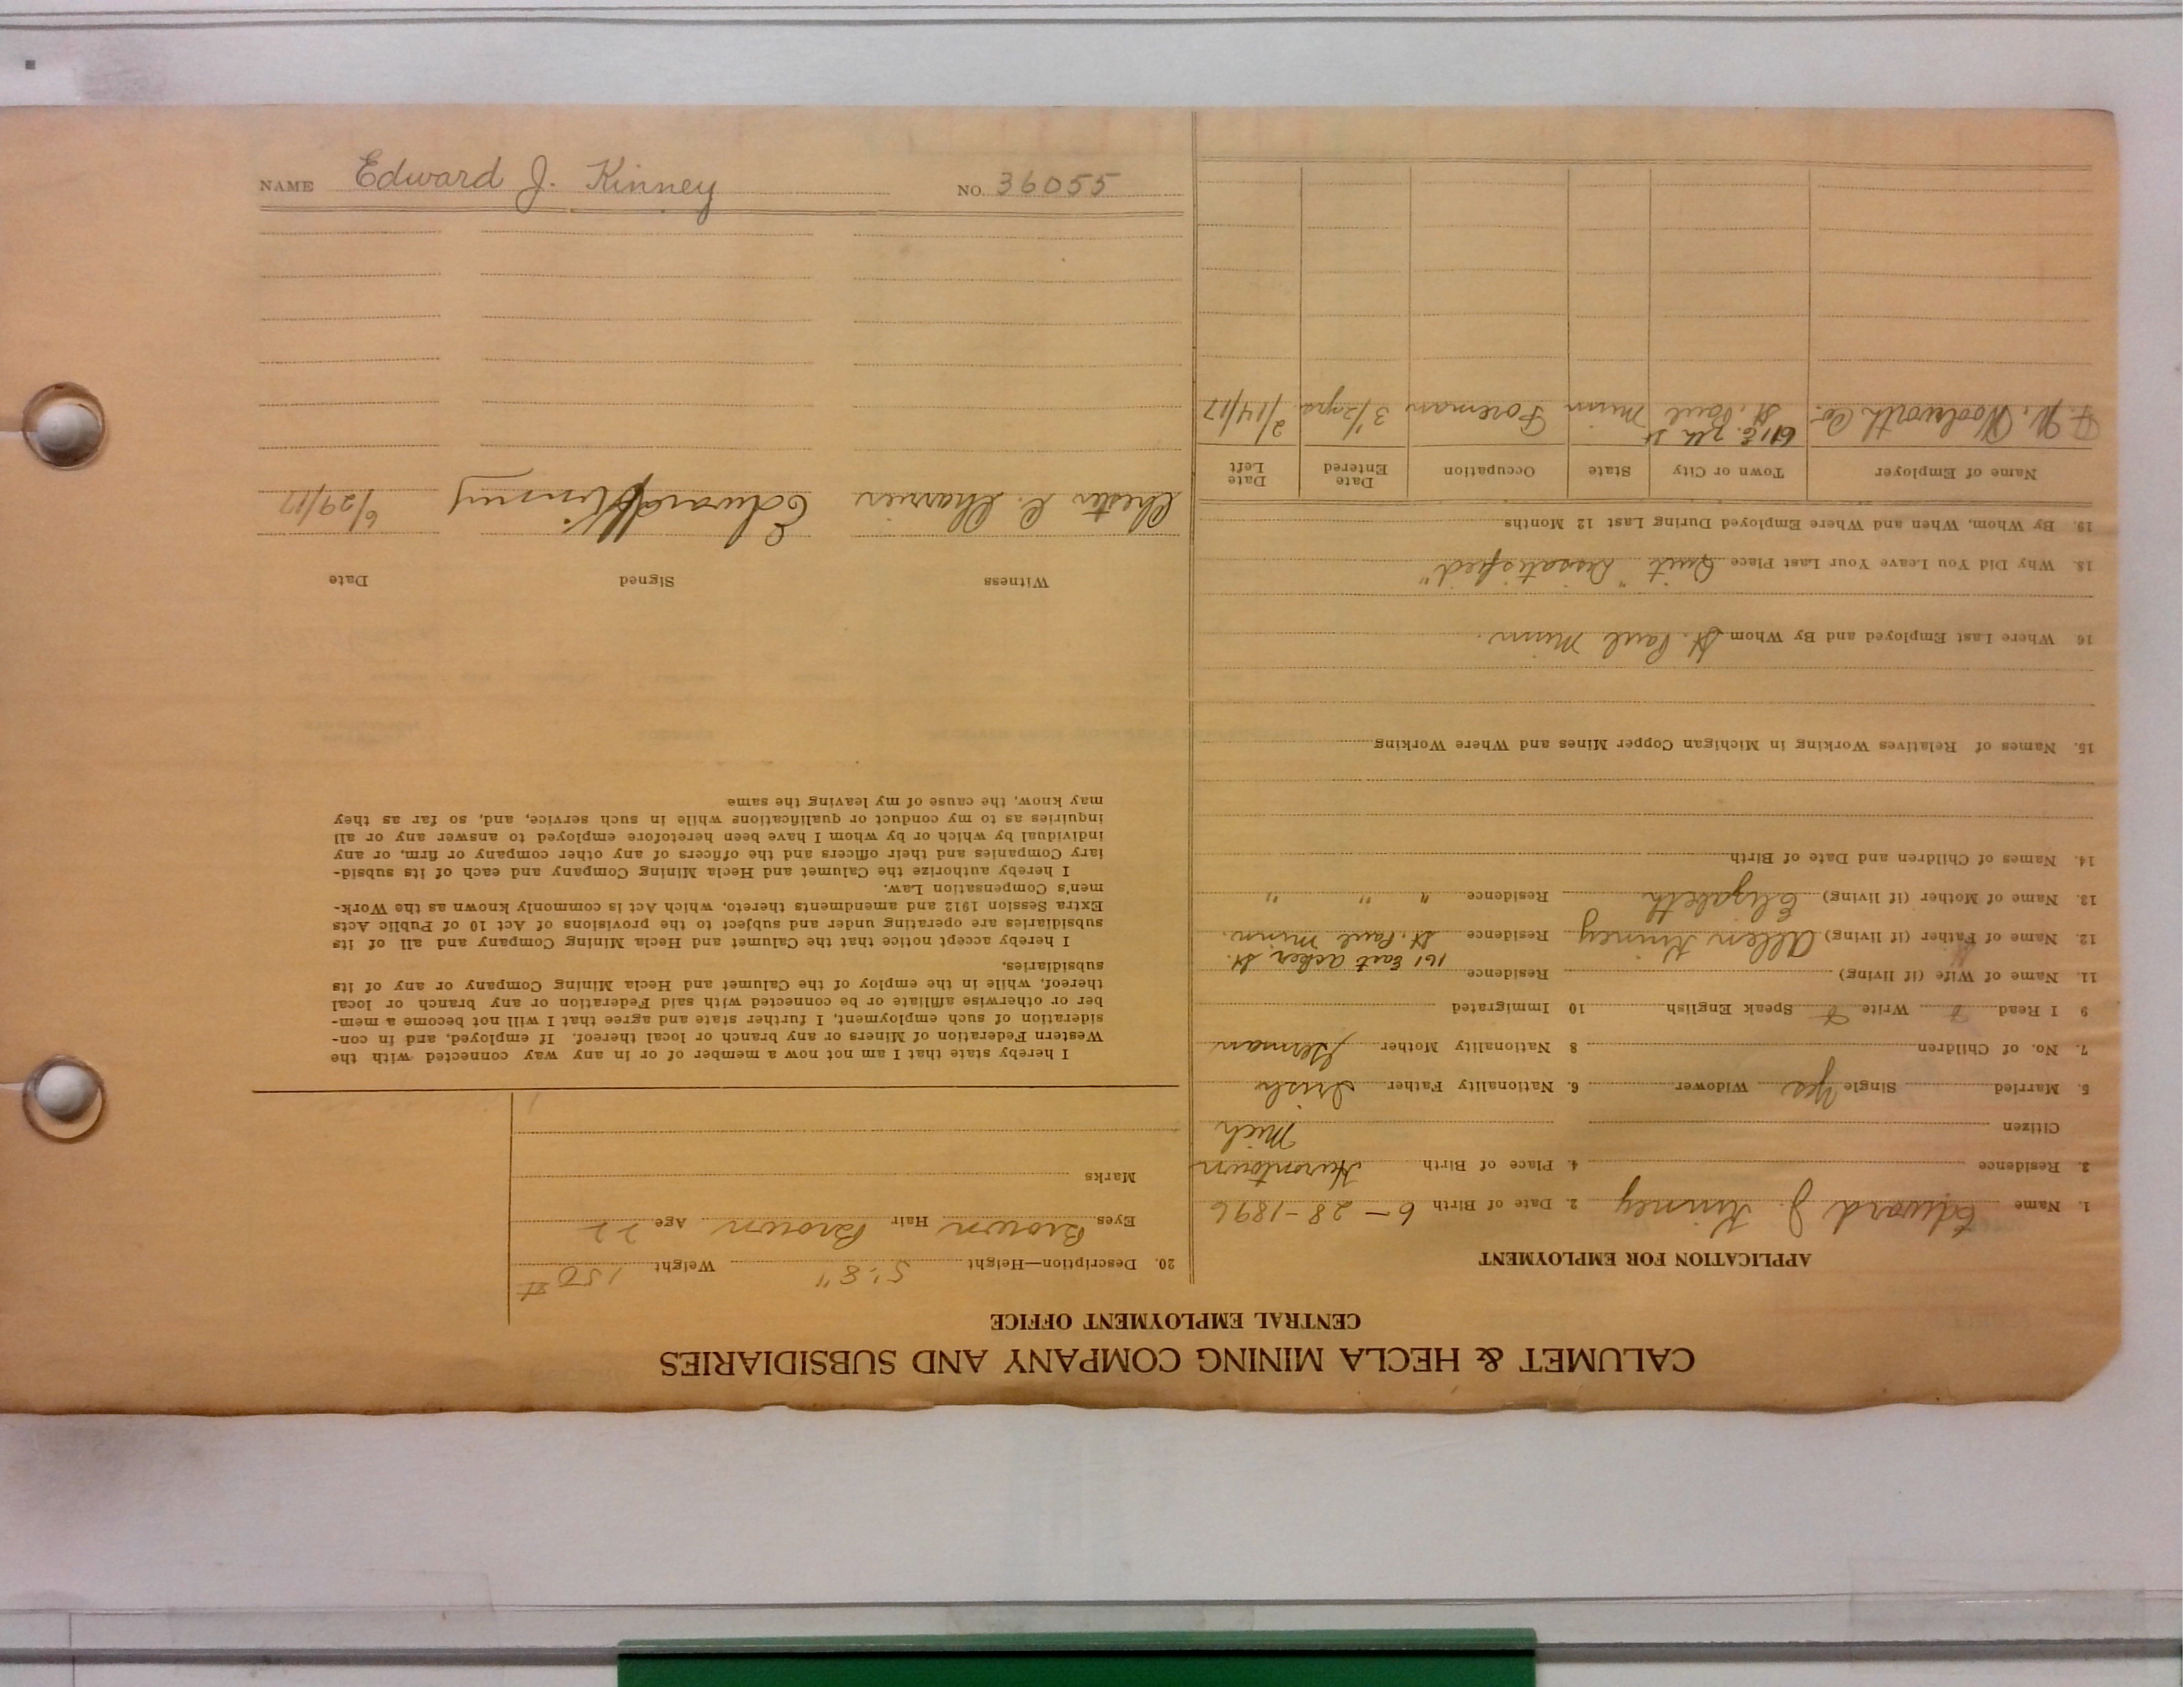 CALUMET & HECLA MINING COMPANY AND SUBSIDIARIES
CENTRAL EMPLOYMENT OFFICE
APPLICATION FOR EMPLOYMENT
1. Name Edward J. Kinney 2. Date of Birth 6-28-1896
3. Residence 4. Place of Birth Hurontown
Citizen Mich
5. Married Single Yes Widower 6. Nationality Father Irish
7. No. of Children 8 Nationality Mother German
9 I Read Write Speak English 10 Immigrated
11. Name of Wife (if living) Residence 161 East Acker St.
12. Name of Father (if living) Allen Kinney Residence St. Paul Minn.
13. Name of Mother (if living) Elizabeth Residence " " "
14. Names of Children and Date of Birth
15. Names of Relatives Working in Michigan Copper Mines and Where Working
16 Where Last Employed and By Whom St. Paul Minn.
18. Why Did You Leave Your Last Place Quit "Dissatisfied"
19. By Whom, When and Where Employed During Last 12 Months
Name of Employer Town or City State Occupation Date Entered Date Left
F. W. Woolworth Co. 61 E. 7th St St. Paul Minn Foreman 3 1/2 yrs 2/14/17
20. Description—Height 5'.8" Weight 150 #
Eyes Brown Hair Brown Age 22
Marks
I hereby state that I am not now a member of or in any way connected with the
Western Federation of Miners or any branch or local thereof. If employed, and in con-
sideration of such employment, I further state and agree that I will not become a mem-
ber or otherwise affiliate or be connected with said Federation or any branch or local
thereof, while in the employ of the Calumet and Hecla Mining Company or any of its
subsidiaries.
I hereby accept notice that the Calumet and Hecla Mining Company and all of its
subsidiaries are operating under and subject to the provisions of Act 10 of Public Acts
Extra Session 1912 and amendments thereto, which Act is commonly known as the Work-
men's Compensation Law.
I hereby authorize the Calumet and Hecla Mining Company and each of its subsid-
iary Companies and their officers and the officers of any other company or firm, or any
individual by which or by whom I have been heretofore employed to answer any or all
inquiries as to my conduct or qualifications while in such service, and, so far as they
may know, the cause of my leaving the same
Witness Signed Date
Chester C. Charrier Edward J Kinney 6/29/17
NAME Edward J. Kinney NO. 36055